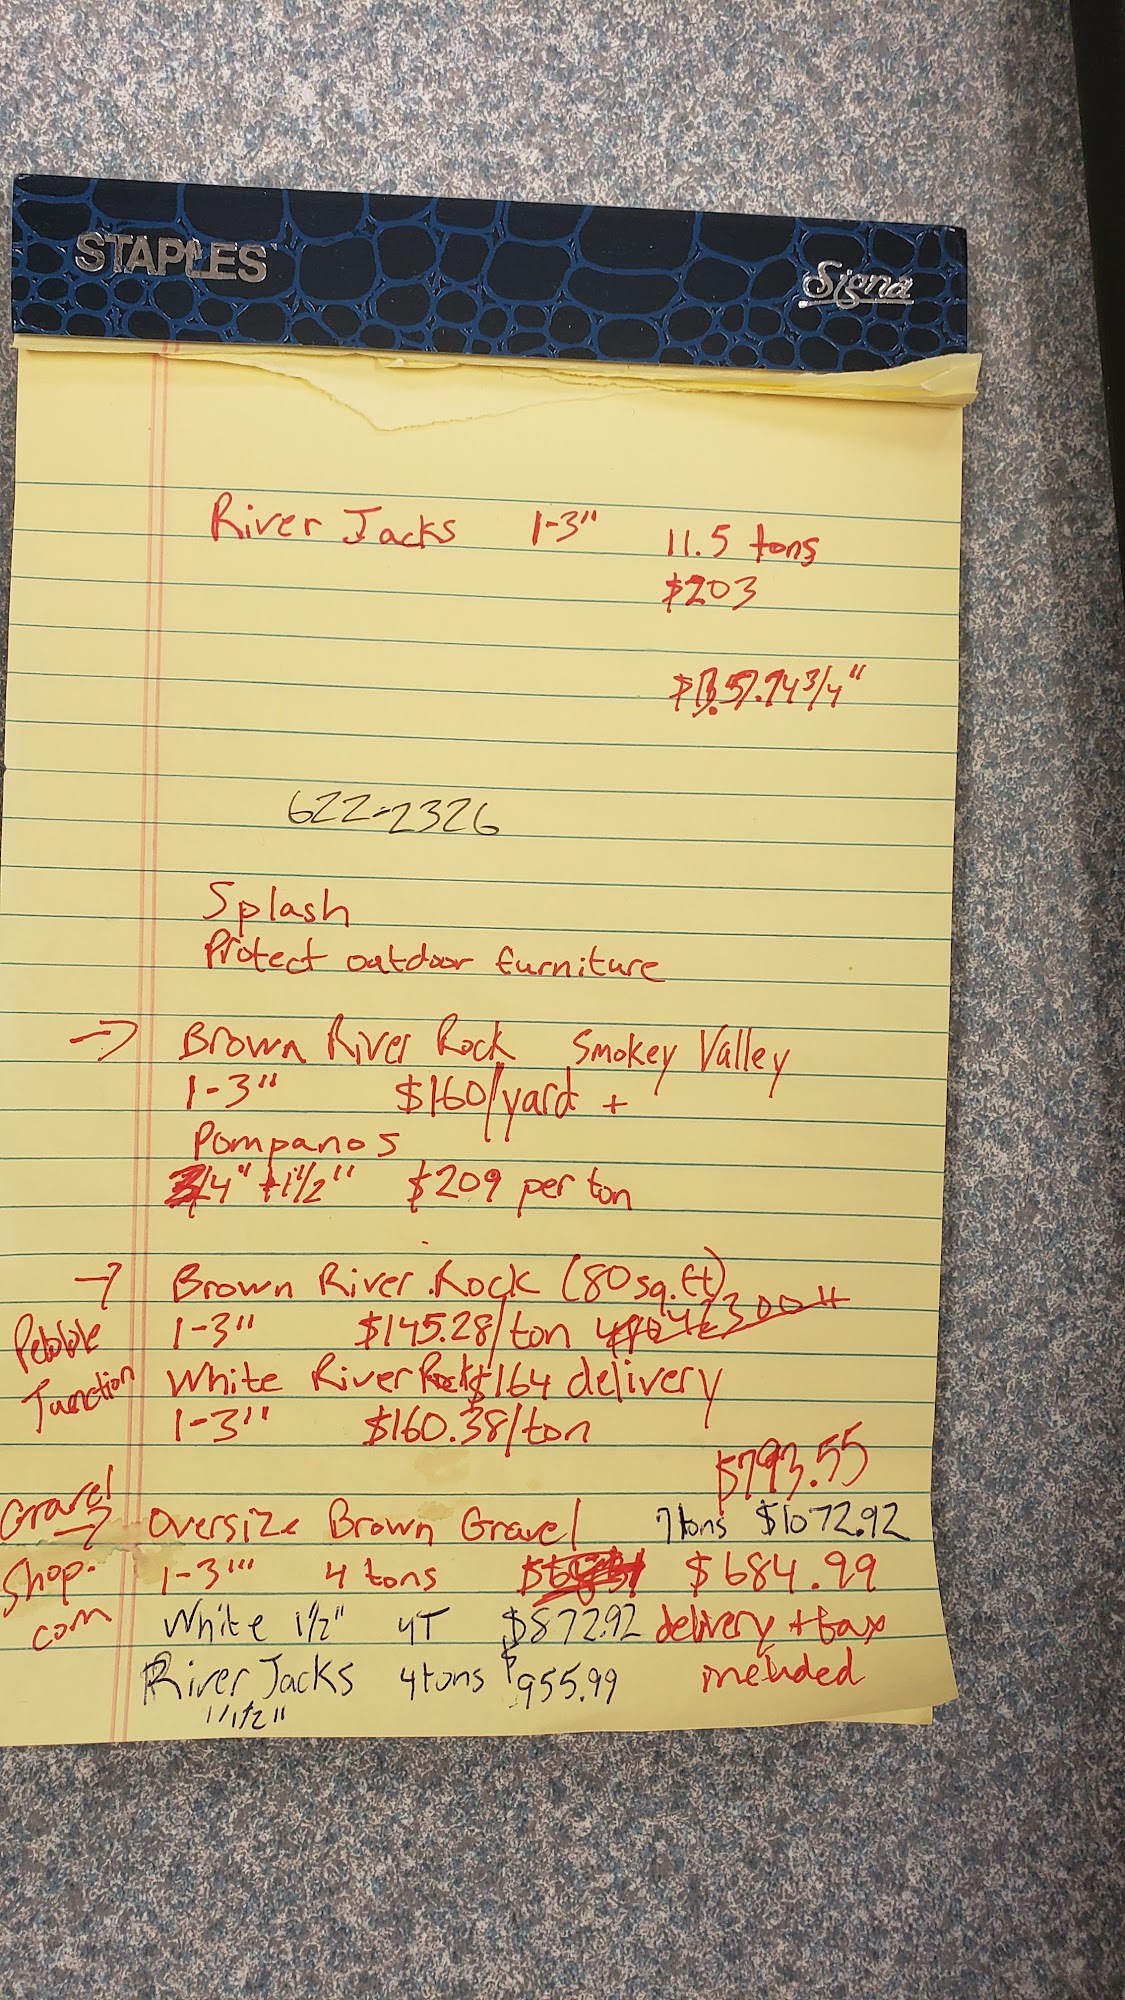 STAPLES Signa
River Jacks 1-3" 11.5 tons
$203
3/4"
622-2326
Splash
Protect outdoor furniture
→ Brown River Rock Smokey Valley
1-3" $160/yard +
Pompanos
3/4" + 1 1/2" $209 per ton
→ Brown River Rock (80 sq.ft)
Pebble Junction
1-3" $145.28/ton
White River Rock $164 delivery
1-3" $160.38/ton
$793.55
Gravel Shop.com
→ Oversize Brown Gravel 7 tons $1072.92
1-3''' 4 tons $684.99
White 1 1/2" 4T $872.92 delivery + tax
River Jacks 4 tons $955.99 included
1 1/2"